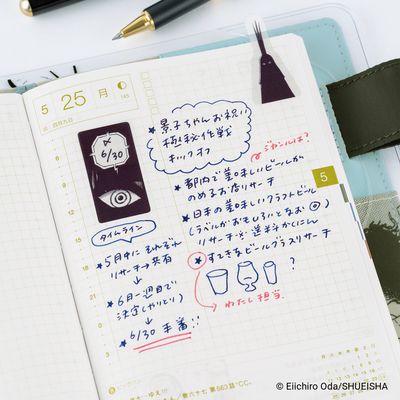 5
25
月
145
〆
6/30
★景子ちゃんお祝い
極秘作戦
キックオフ
ジャンルは?
★都内で美味しいビールが
のめるお店リサーチ
★日本の美味しいクラフトビール
(ラベルがおもしろいとなお◎)
リサーチ
★すてきなビールグラスリサーチ
?
わたし担当
タイムライン
★5月中にそれぞれ
リサーチ→共有
↓
★6月一週目で
決定(やりとり)
↓
★6/30 本番!!
5
© Eiichiro Oda/SHUEISHA